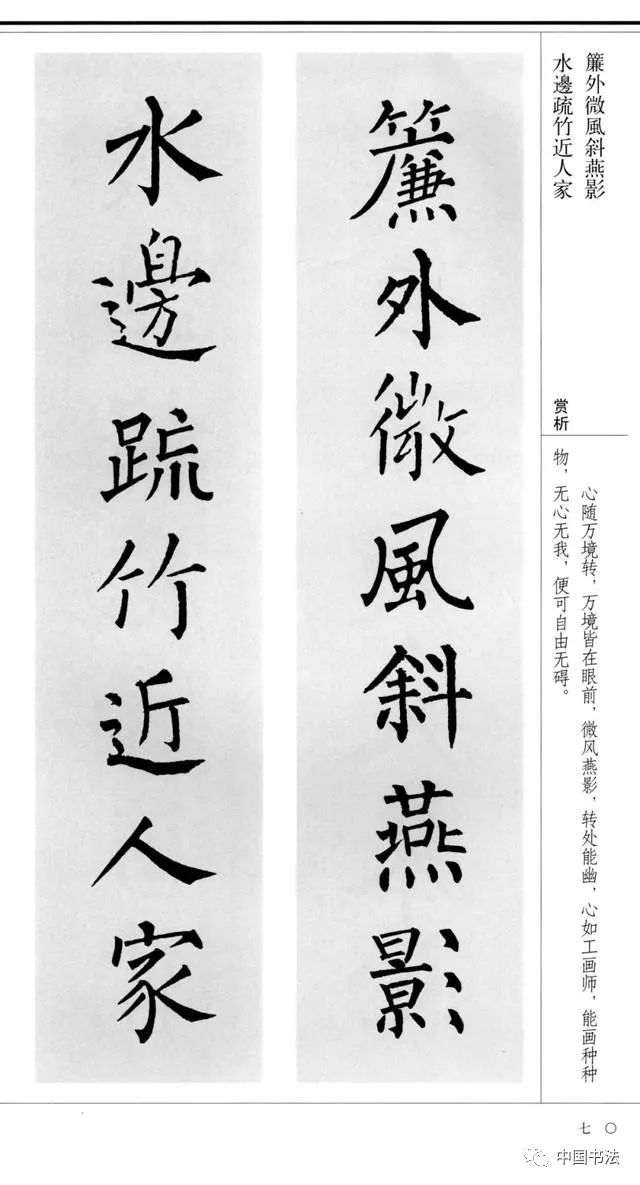 簾外微風斜燕影
水邊疏竹近人家
赏析
心随万境转，万境皆在眼前，微风燕影，转处能幽，心如工画师，能画种种
物，无心无我，便可自由无碍。
簾外微風斜燕影
水邊疏竹近人家
七〇
中国书法